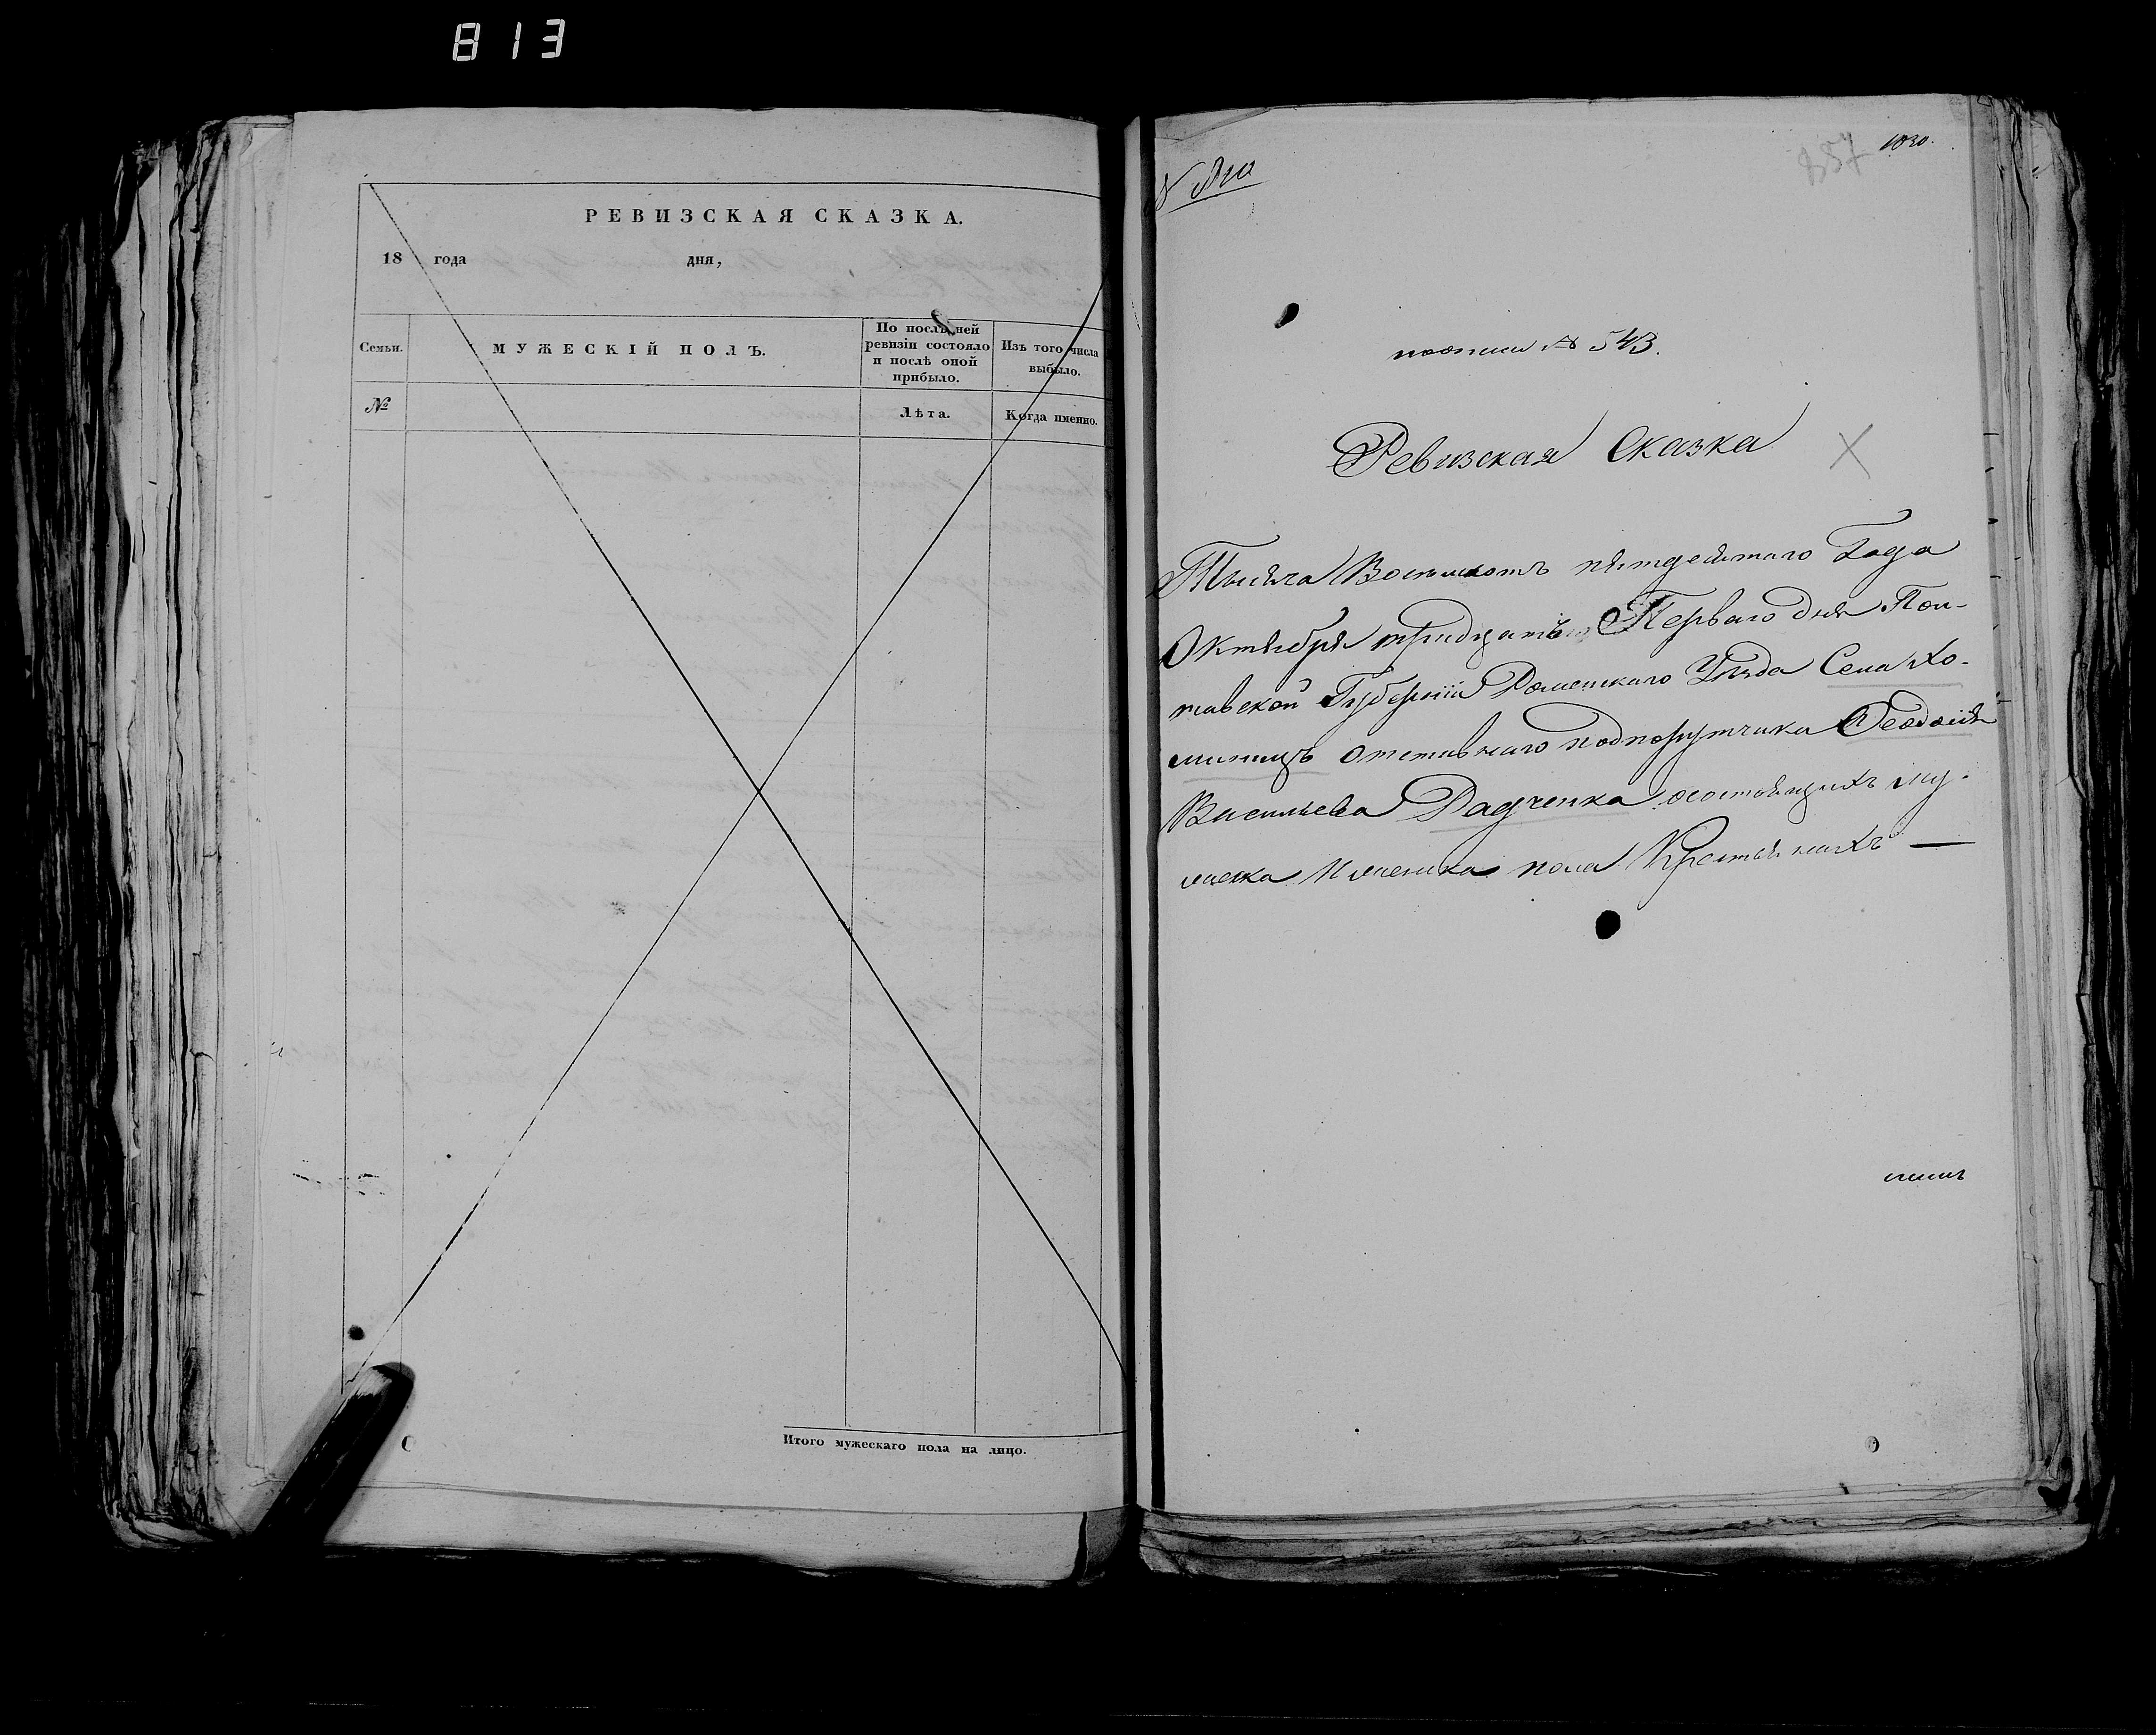 813
РЕВИЗСКАЯ СКАЗКА.
18 года дня,
Семьи.
МУЖЕСКІЙ ПОЛЪ.
По послѣдней
ревизіи состояло
и послѣ оной
прибыло.
Изъ того числа
выбыло.
№
Лѣта.
Когда именно.
Итого мужескаго пола на лицо.
857
1030.
№ 543.
Ревизская Сказка
Тысяча Восемьсотъ пятдесятаго Года
Октября тридцать Перваго дня Пол-
тавской Губерніи Роменскаго Уѣзда Села Хо-
минцъ отставнаго подпорутчика Ѳеодосія
Васильева Радченка состоящихъ му-
жеска И женска пола Крестьянахъ —